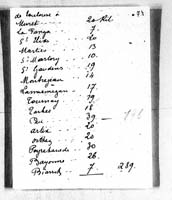 de Toulouse à
Muret 20 Kil
7
St 20
Martres 13
St Martory 10
St Gaudens 19
Montrejeau 14
Lannemezan 17
Tournay 19
Tarbes 18
39
Artix 20
Orthez 20
Peyrehorade 30
Bayonne 26
Biarritz 7 289.